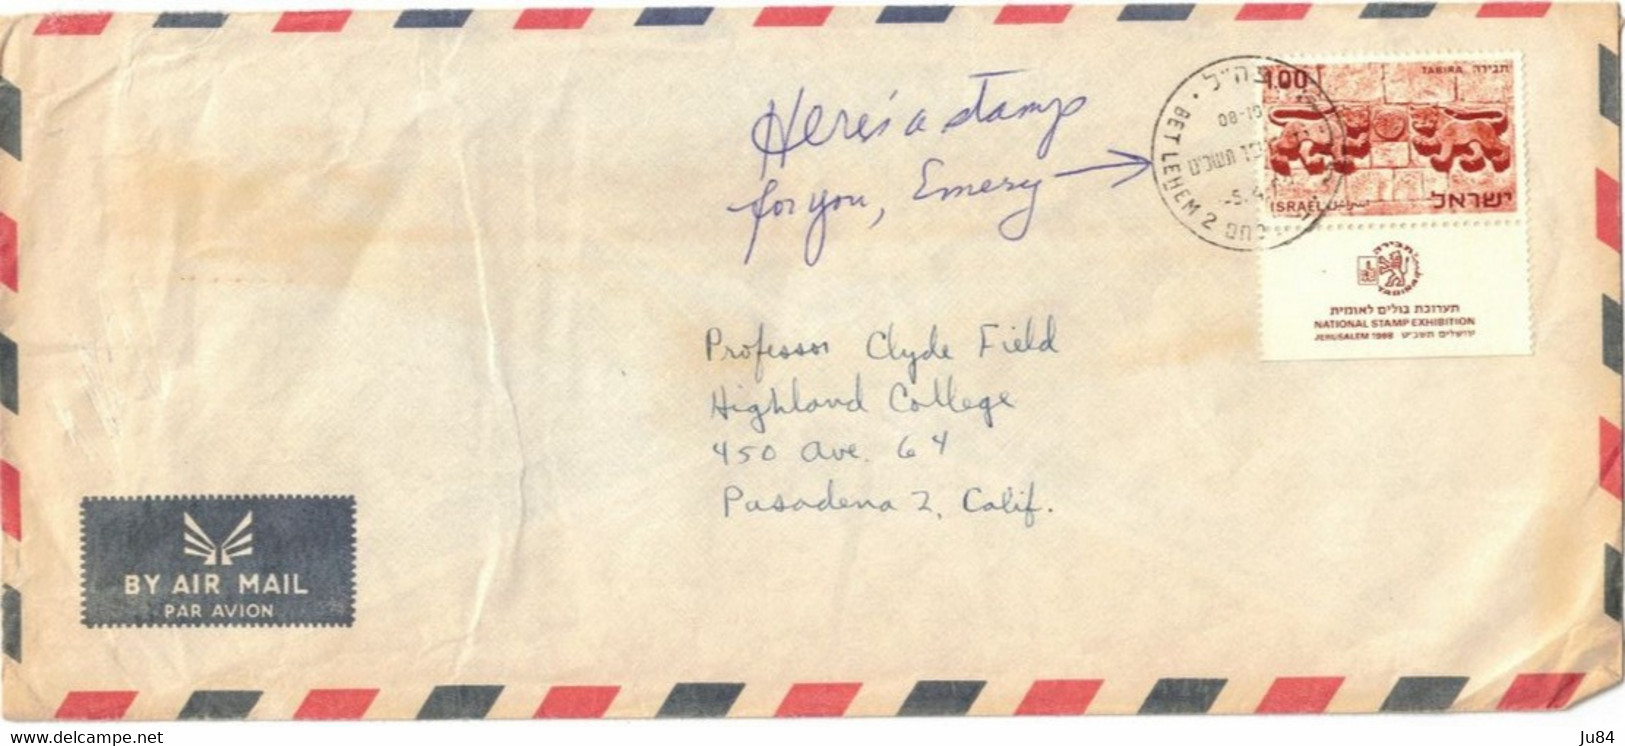 Here's a stamp
for you, Emery
1.00
TABIRA תבירה
ISRAEL اسرائيل ישראל
צה״ל
08-10
BET LEHEM 2
-5. 4
TABIRA תבירה
תערוכת בולים לאומית
NATIONAL STAMP EXHIBITION
JERUSALEM 1968 ירושלים תשכ״ט
Professor Clyde Field
Highland College
450 Ave. 64
Pasadena 2, Calif.
BY AIR MAIL
PAR AVION
www.delcampe.net
Ju84